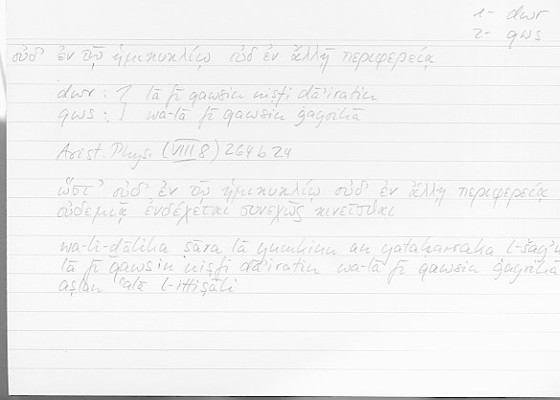 1- dwr
2- qws
οὐδ' ἐν τῷ ἡμικυκλίῳ οὐδ' ἐν ἄλλῃ περιφερείᾳ
dwr : } lā fī qawsin niṣfi dāʾiratin
qws : } wa-lā fī qawsin ġayrihā
Arist. Phys. (VIII 8) 264 b 24
ὥστ' οὐδ' ἐν τῷ ἡμικυκλίῳ οὐδ' ἐν ἄλλῃ περιφερείᾳ
οὐδεμιᾷ ἐνδέχεται συνεχῶς κινεῖσθαι
wa-li-ḏālika ṣāra lā yumkinu an yataḥarraka l-šayʾu
lā fī qawsin niṣfi dāʾiratin wa-lā fī qawsin ġayrihā
aṣlan ʿalā l-ittiṣāli